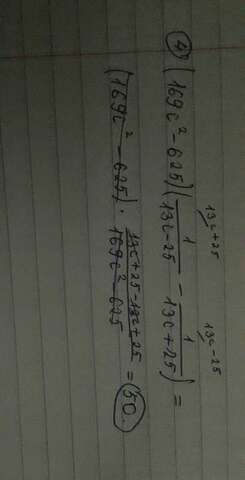 4) (169c² - 625)(1/(13c-25) - 1/(13c+25)) =
13c+25 13c-25
(169c² - 625) · (13c+25-13c+25)/(169c²-625) = 50.